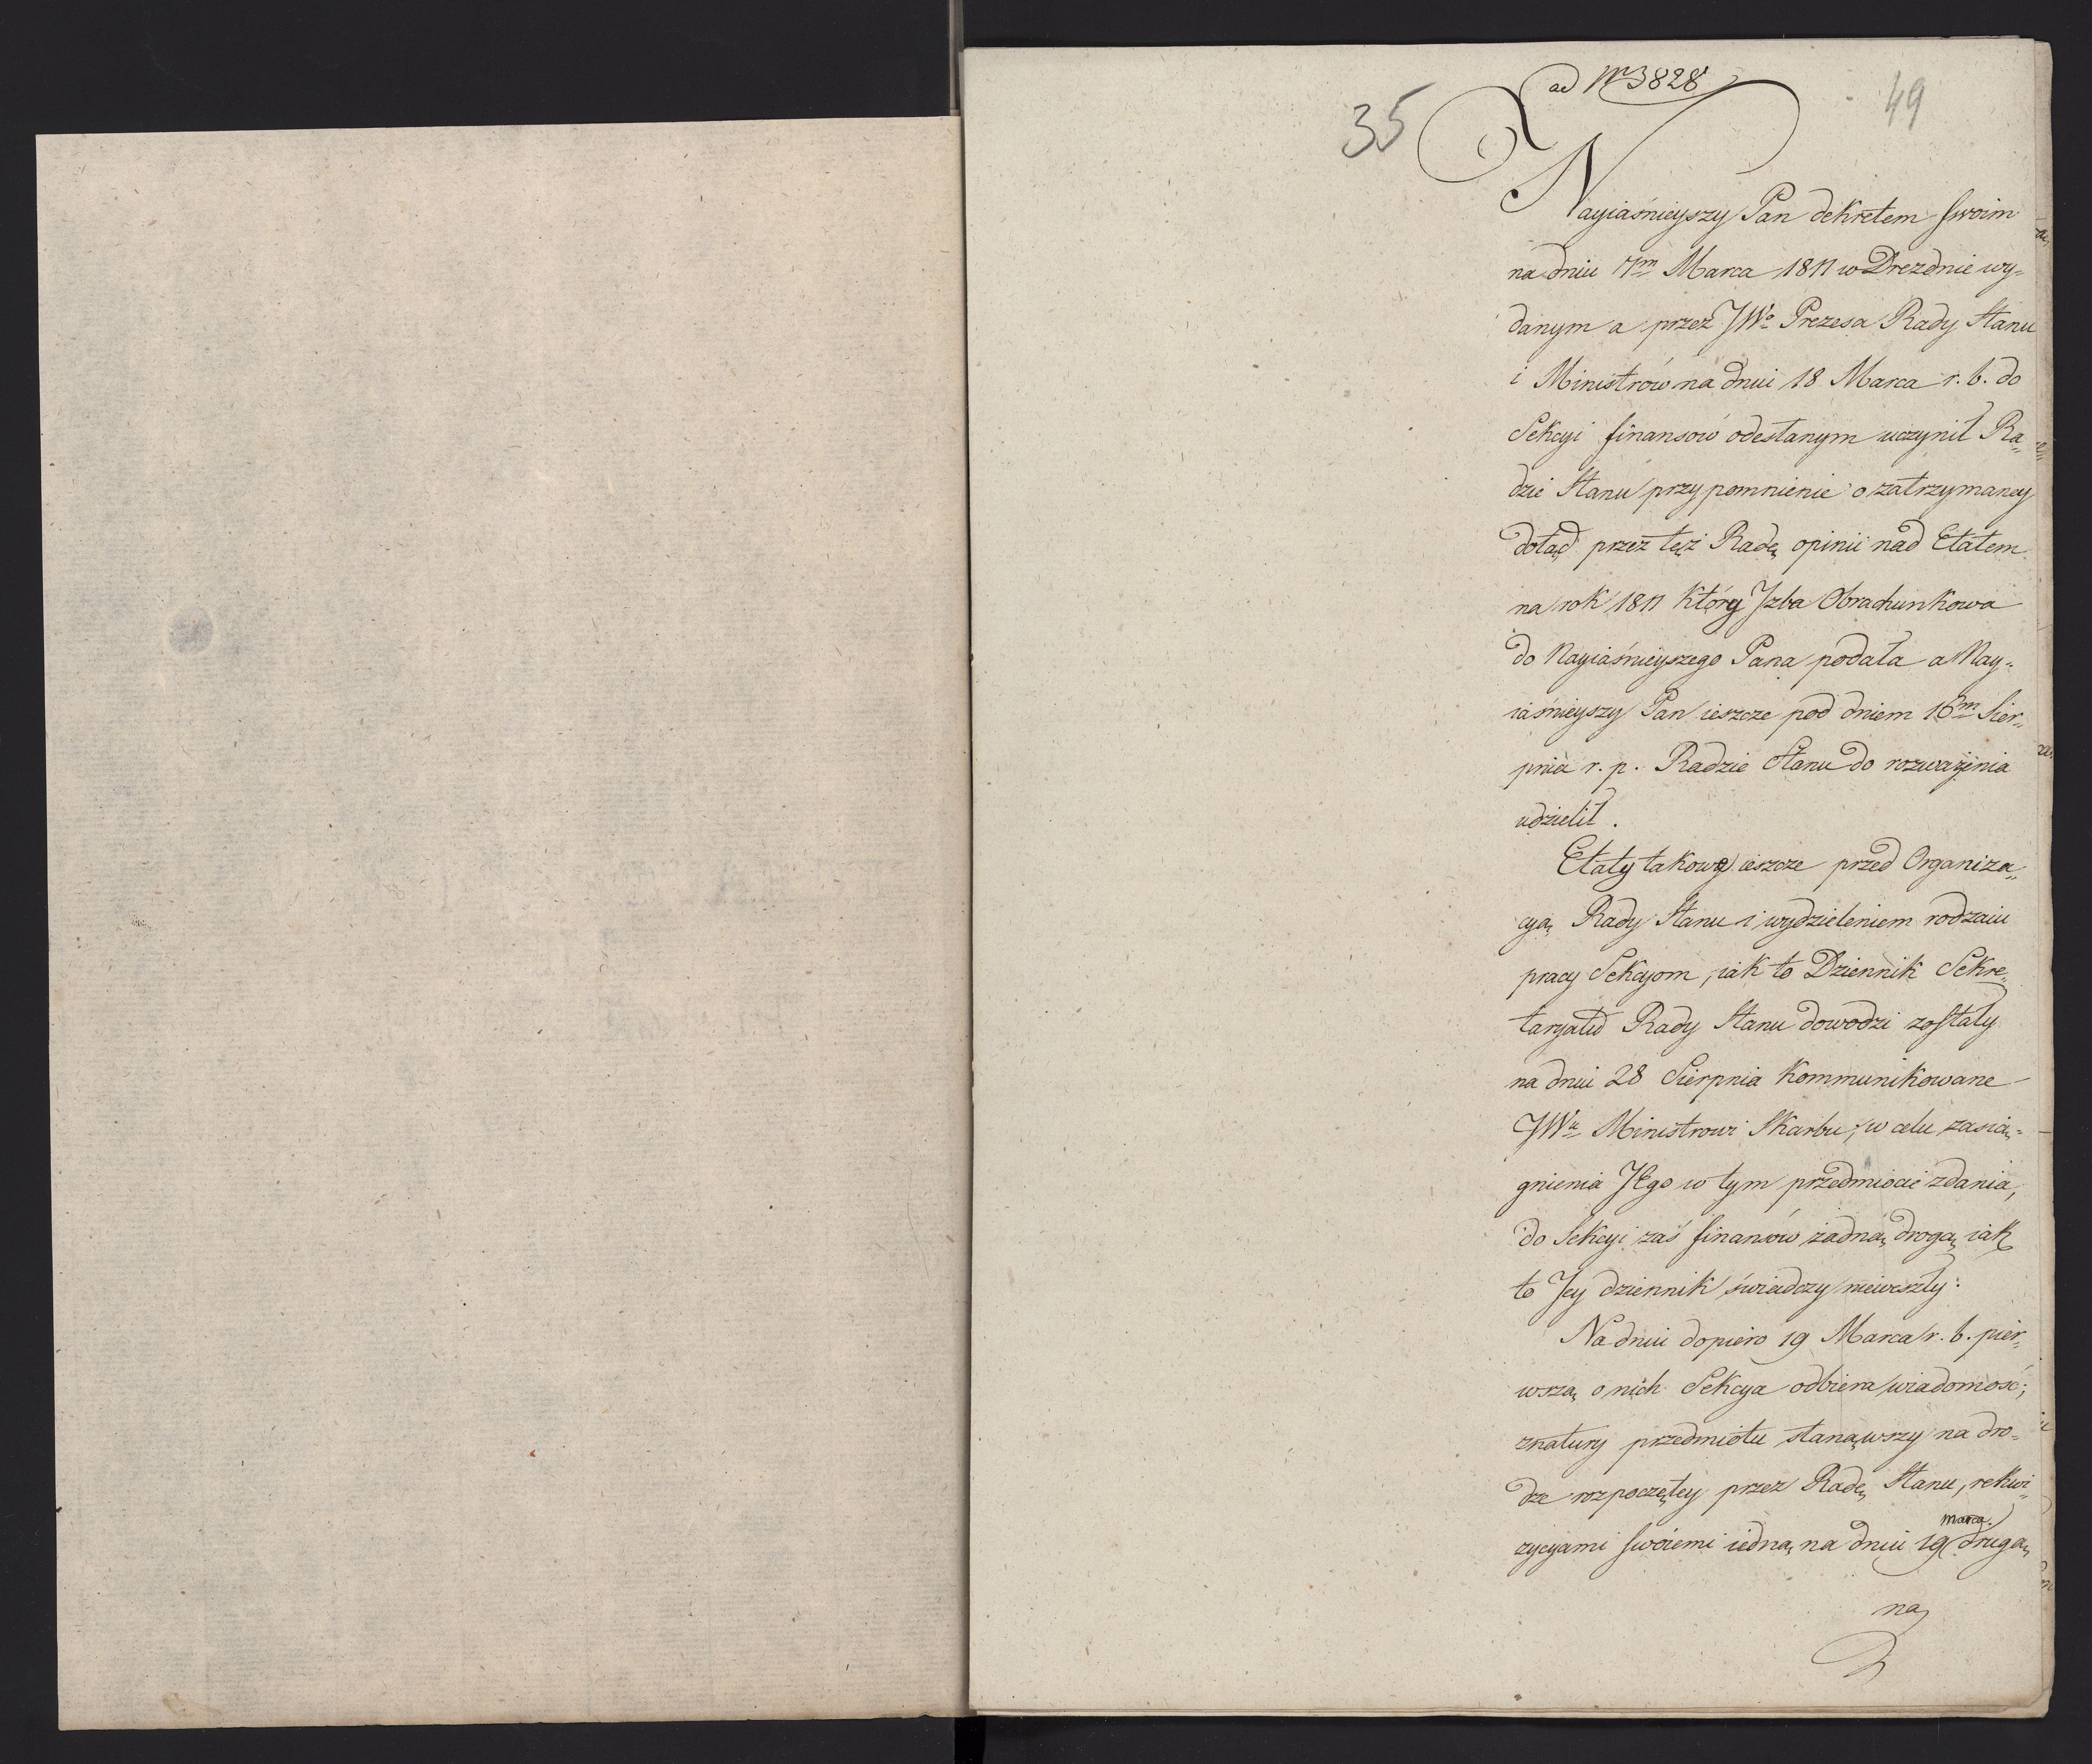 ad Nro 3828
35
49
Nayiaśnieyszy Pan dekretem swoim
na dniu 7m Marca 1811 w Dreznie wy=
danym a przez JWo Prezesa Rady Stanu
i Ministrów na dniu 18 Marca r. b. do
Sekcyi finansow odesłanym uczynił Ra„
dzie Stanu przypomnienie o zatrzymaney
dotąd przez tęż Radę opinii nad Etatem
na rok 1811 który Jzba Obrachunkowa
do Nayiaśnieyszego Pana podała a Nay=
iaśnieyszy Pan ieszcze pod dniem 16m Sier„
pnia r. p. Radzie Stanu do rozważenia
udzielił.
Etaty takowe ieszcze przed Organiza„
cyą Rady Stanu i wydzieleniem rodzaiu
pracy Sekcyom, iak to Dziennik Sekre„
taryatu Rady Stanu dowodzi zostały
na dniu 28 Sierpnia kommunikowane
JWu Ministrowi Skarbu, w celu zasią=
gnienia Jego w tym przedmiocie zdania,
do Sekcyi zaś finansów żadną drogą iak
to Jey dziennik świadczy nieweszły.
Na dniu dopiero 19 Marca r. b. pier„
wszą o nich Sekcya odbiera wiadomość;
znatury przedmiotu stanąwszy na dro=
dze rozpoczętey przez Radę Stanu, rekwi„
zycyami swoiemi iedną na dniu 19 marca drugą
na